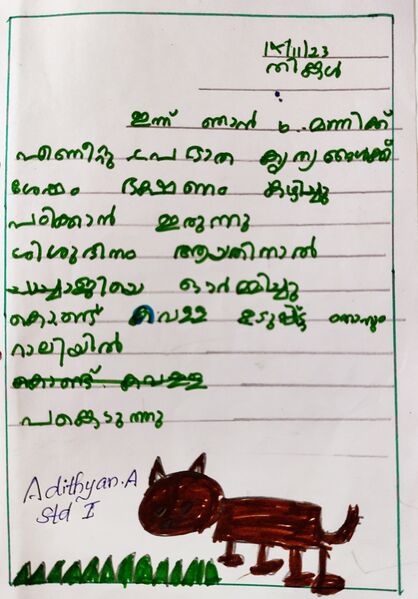 14/11/23
തിങ്കൾ
ഇന്ന് ഞാൻ 6 മണിക്ക്
എണീറ്റു പ്രഭാത കൃത്യങ്ങൾക്ക്
ശേഷം ഭക്ഷണം കഴിച്ചു
പഠിക്കാൻ ഇരുന്നു
ശിശുദിനം ആയതിനാൽ
ചാച്ചാജിയെ ഓർമ്മിച്ചു
കൊണ്ട് വെള്ള ഉടുപ്പിട്ട്
റാലിയിൽ
കൊണ്ട് വെള്ള
പങ്കെടുത്തു
Adithyan.A
Std I